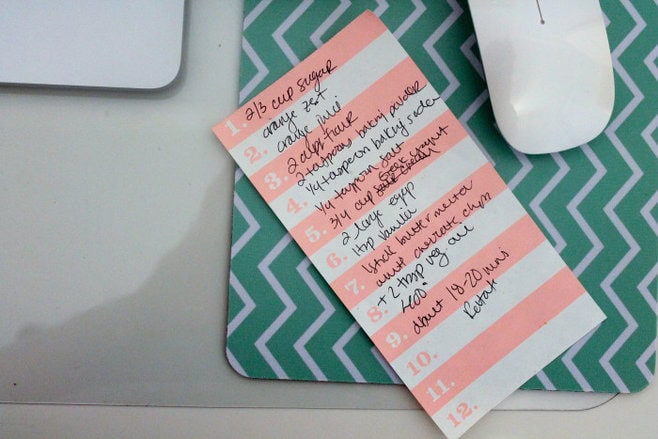 1. 2/3 cup sugar
orange zest
2. orange juice
2 cups flour
3. 2 teaspoons baking powder
1/4 teaspoon baking soda
4. 1/4 teaspoon salt
3/4 cup greek yogurt
5. 2 large eggs
6. 1 tsp vanilla
1 stick butter melted
7. chocolate chips
+ 2 tbsp veg oil
8. 400°
9. about 18-20 mins
10.
11.
12.